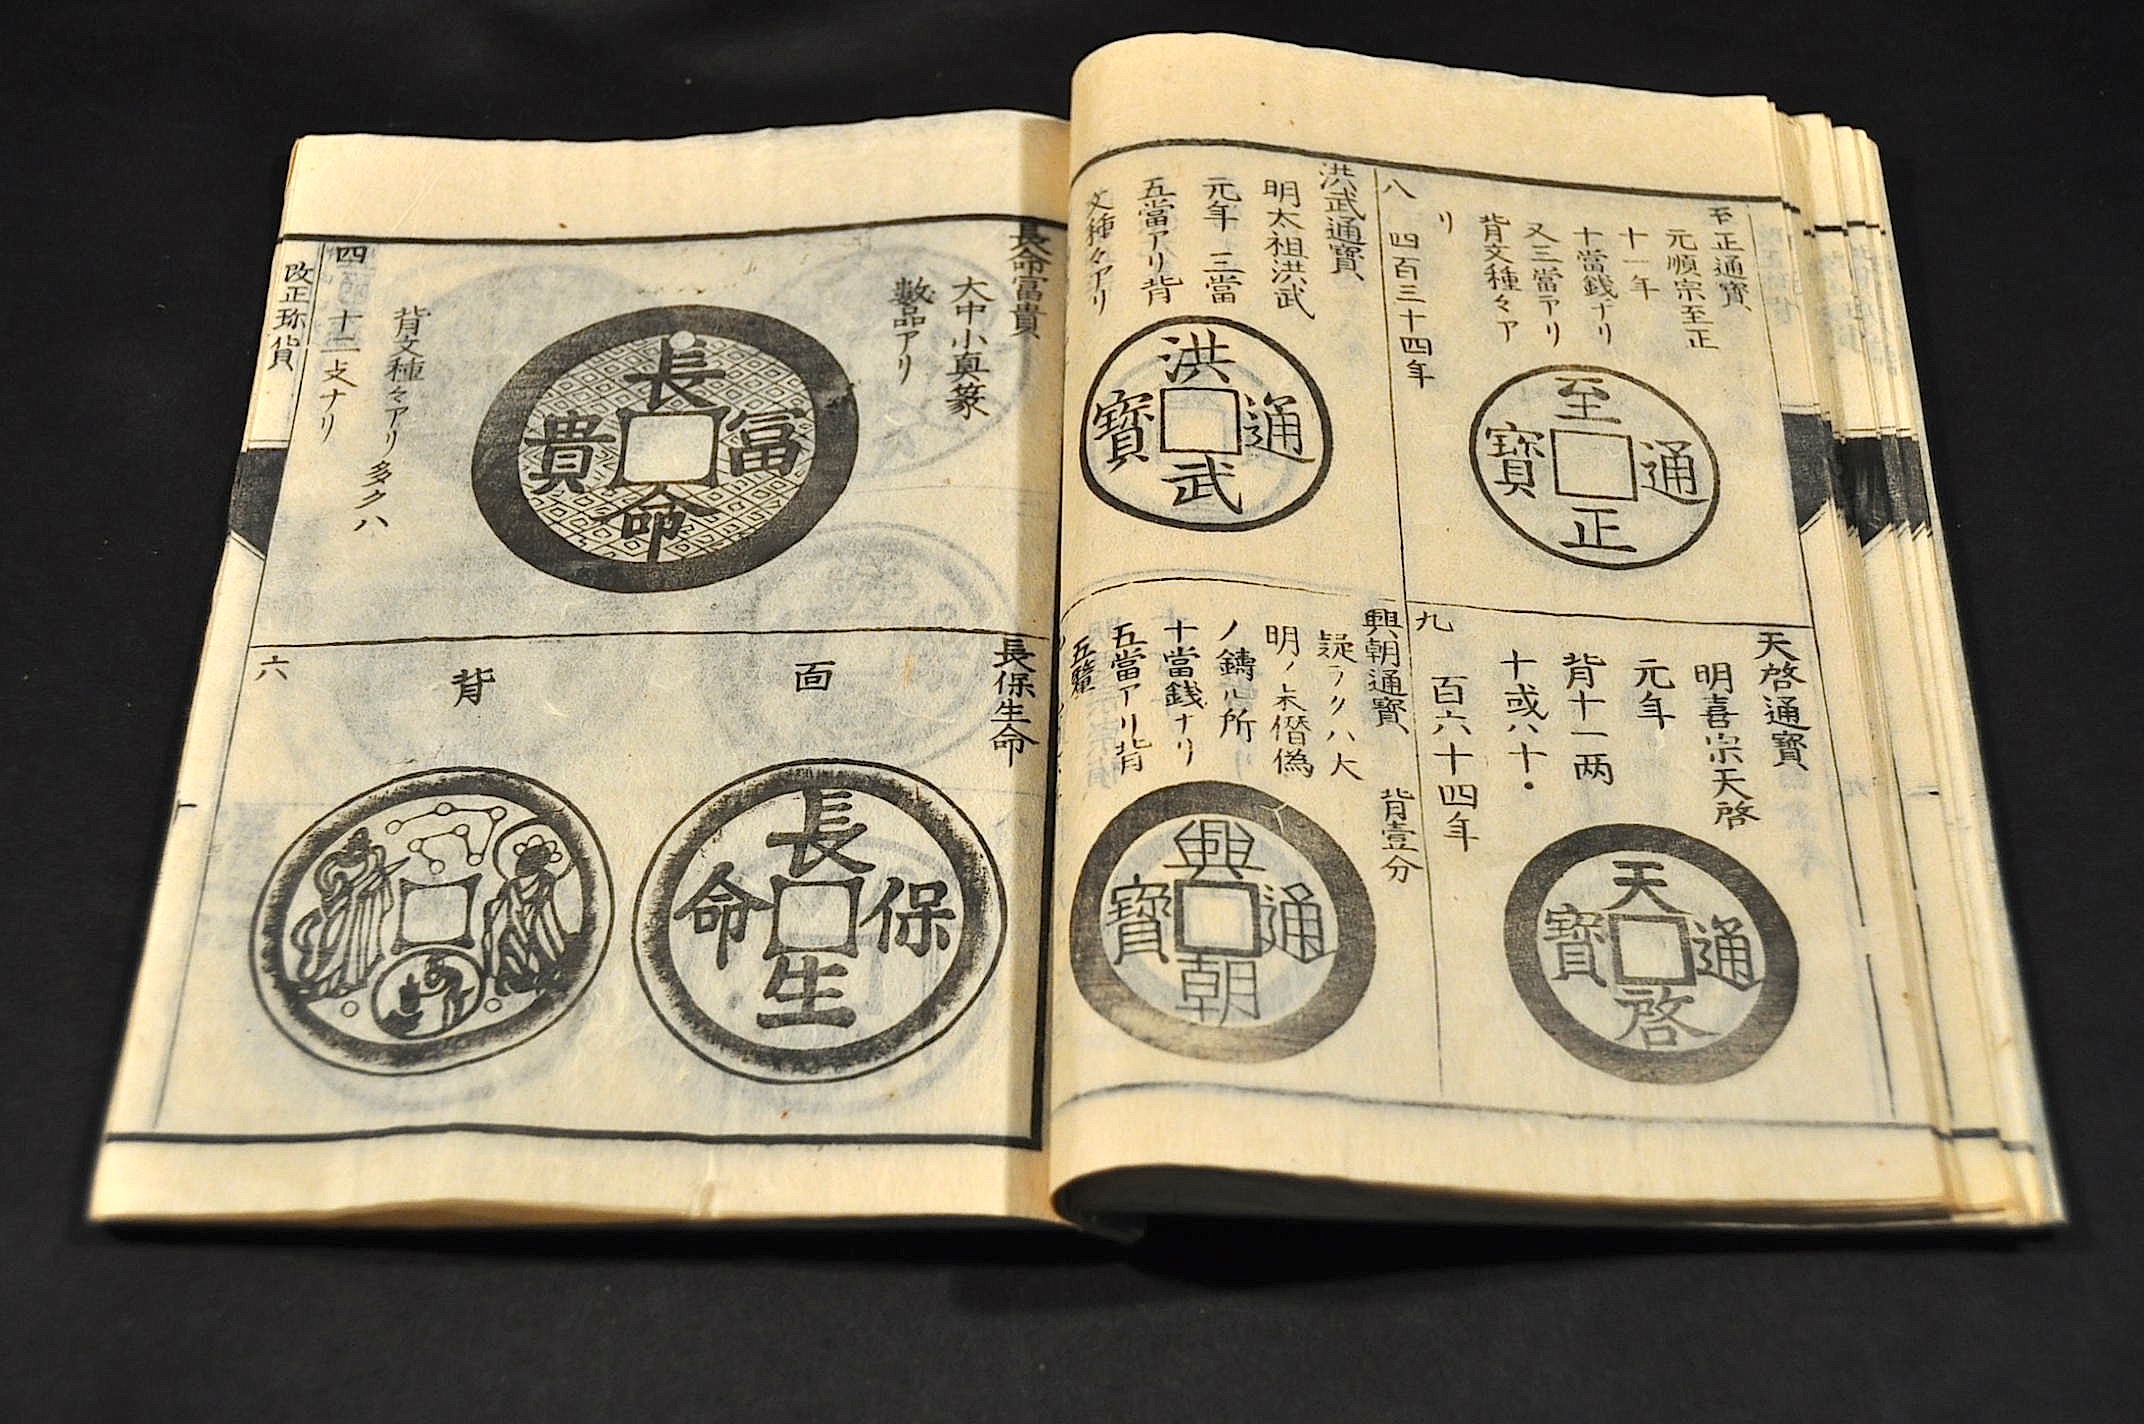 至正通寳
元順宗至正
十一年
十當銭ナリ
又三當アリ
背文種々ア
リ
四百三十四年
八
至正通寳
洪武通寳
明太祖洪武
元年 三當
五當アリ背
文種々アリ
洪武通寳
天啓通寳
明喜宗天啓
元年
背十一两
十或八十・
百六十四年
九
天啓通寳
興朝通寳
疑ラクハ大
明ノ末僭偽
ノ鑄心所
十當銭ナリ
五當アリ背
五釐
背壹分
興朝通寳
長命富貴
大中小真篆
數品アリ
長命富貴
背文種々アリ多クハ
十二支ナリ
四
長保生命
面
長生保命
背
六
改正珎貨